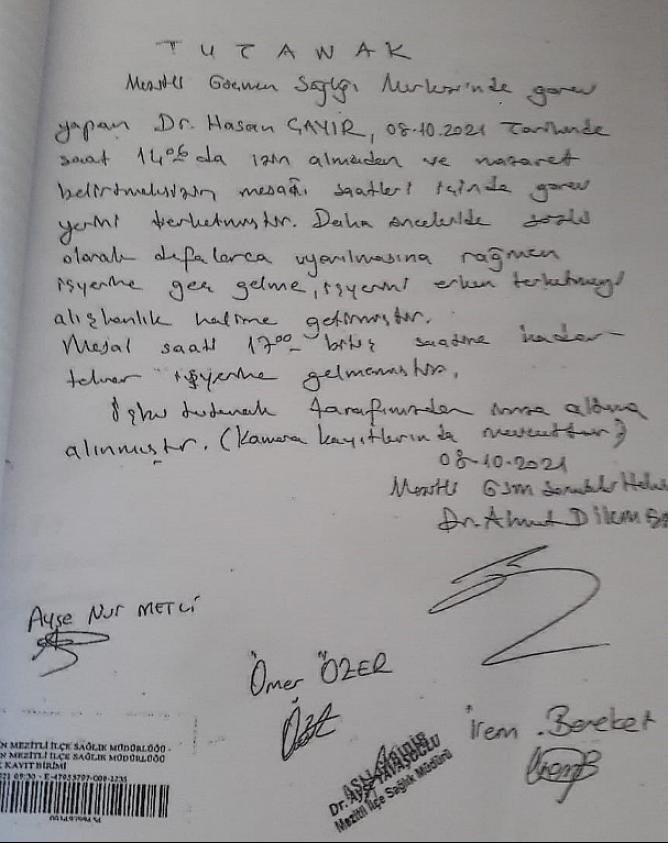 TUTANAK
Mezitli Göçmen Sağlığı Merkezinde görev
yapan Dr. Hasan ÇAYIR, 08.10.2021 tarihinde
saat 14.06 da izin almadan ve mazaret
belirtmeksizin mesai saatleri içinde görev
yerini terketmiştir. Daha öncelerinde sözlü
olarak defalarca uyarılmasına rağmen
işyerine geç gelme, işyerini erken terketmeyi
alışkanlık haline getirmiştir.
Mesai saati 17.00 bitiş saatine kadar
tekrar işyerine gelmemiştir.
İşbu tutanak tarafımızdan imza altına
alınmıştır. (Kamera kayıtlarında mevcuttur)
08-10-2021
Mezitli GSM Sorumlu Hekim
Dr. Ahmet
Ayşe Nur METLİ
Ömer ÖZER
İrem Bereket
MEZİTLİ İLÇE SAĞLIK MÜDÜRLÜĞÜ -
MEZİTLİ İLÇE SAĞLIK MÜDÜRLÜĞÜ
KAYIT BİRİMİ
09:30 -
ASLI GİBİDİR
Dr. Ayşe YAVAŞOĞLU
Mezitli İlçe Sağlık Müdürü